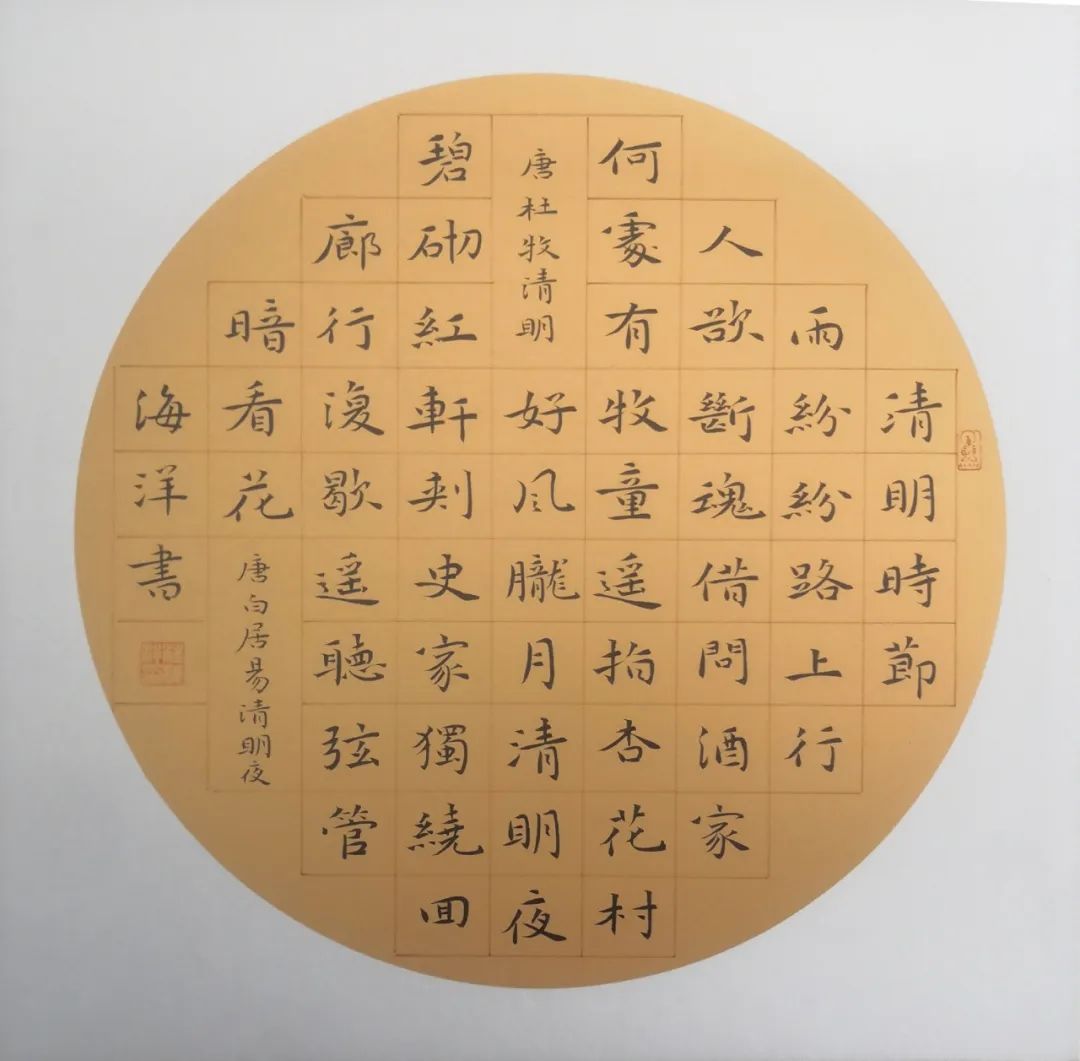 清明時節
雨紛紛路上行
人欲斷魂借問酒家
何處有牧童遥指杏花村
唐杜牧清明
好風朧月清明夜
碧砌紅軒刺史家獨繞回
廊行復歇遥聽弦管
暗看花
唐白居易清明夜
海洋書